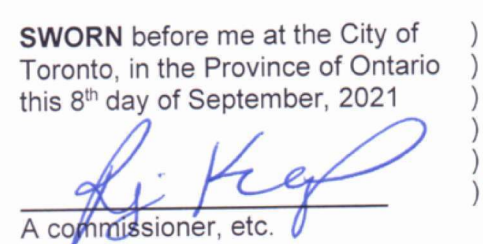 SWORN before me at the City of )
Toronto, in the Province of Ontario )
this 8th day of September, 2021 )
)
)
A commissioner, etc.